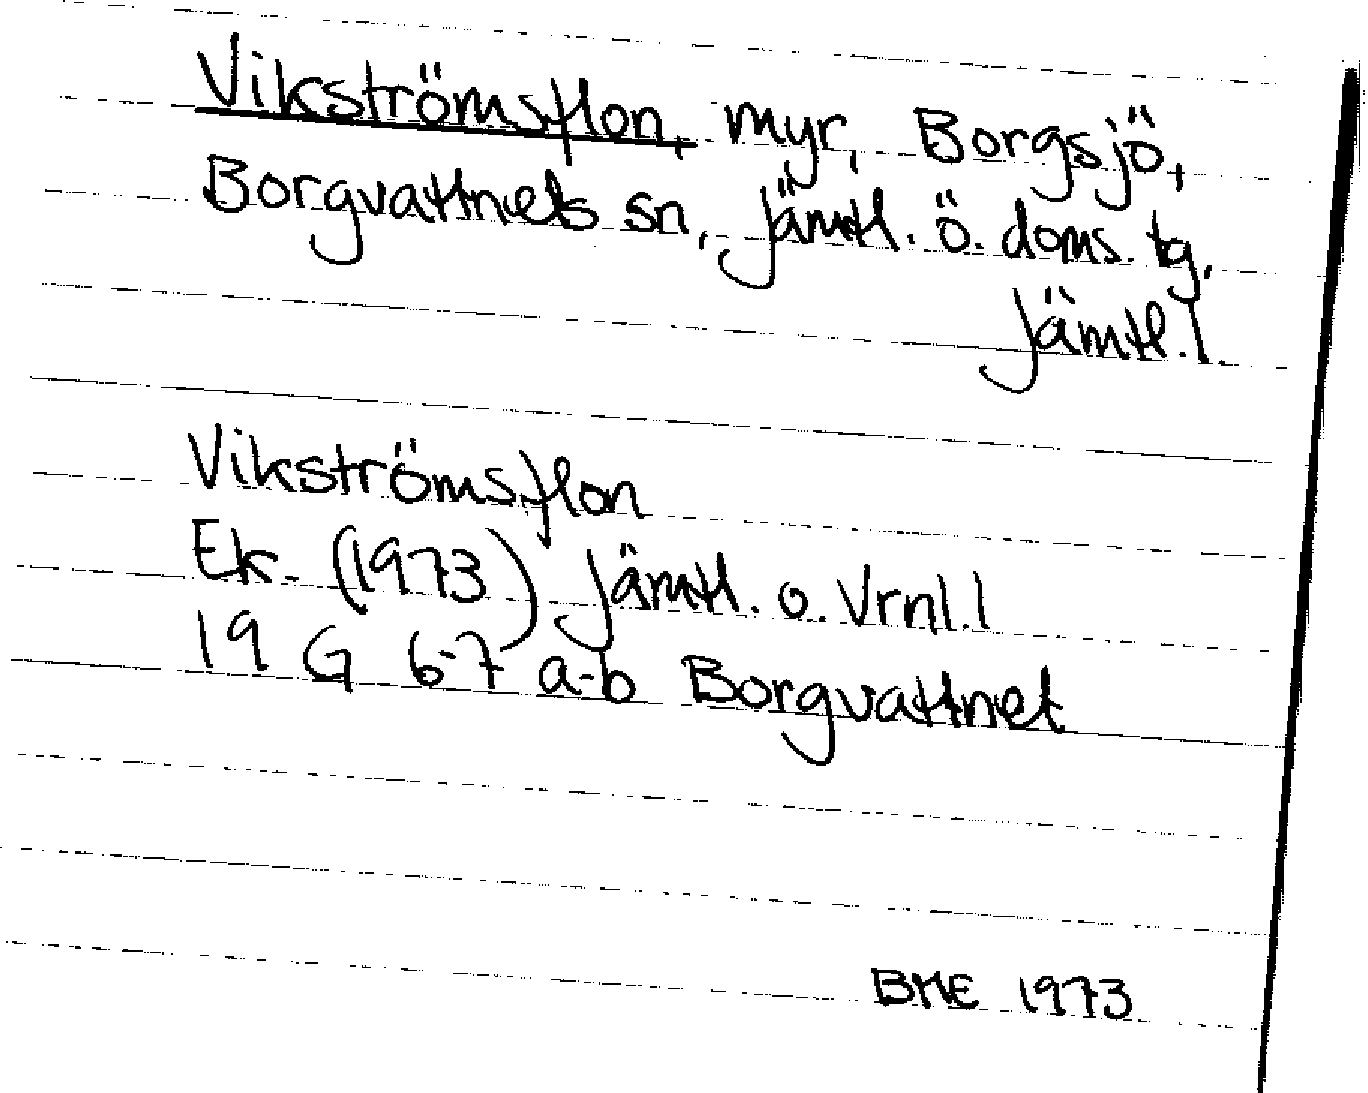 Vikströmsflon, myr, Borgsjö,
Borgvattnets sn, Jämtl. ö. doms. tg,
Jämtl. l.
Vikströmsflon
Ek. (1973) Jämtl. o. Vrnl. l
19 G 6-7 a-b Borgvattnet
BME 1973